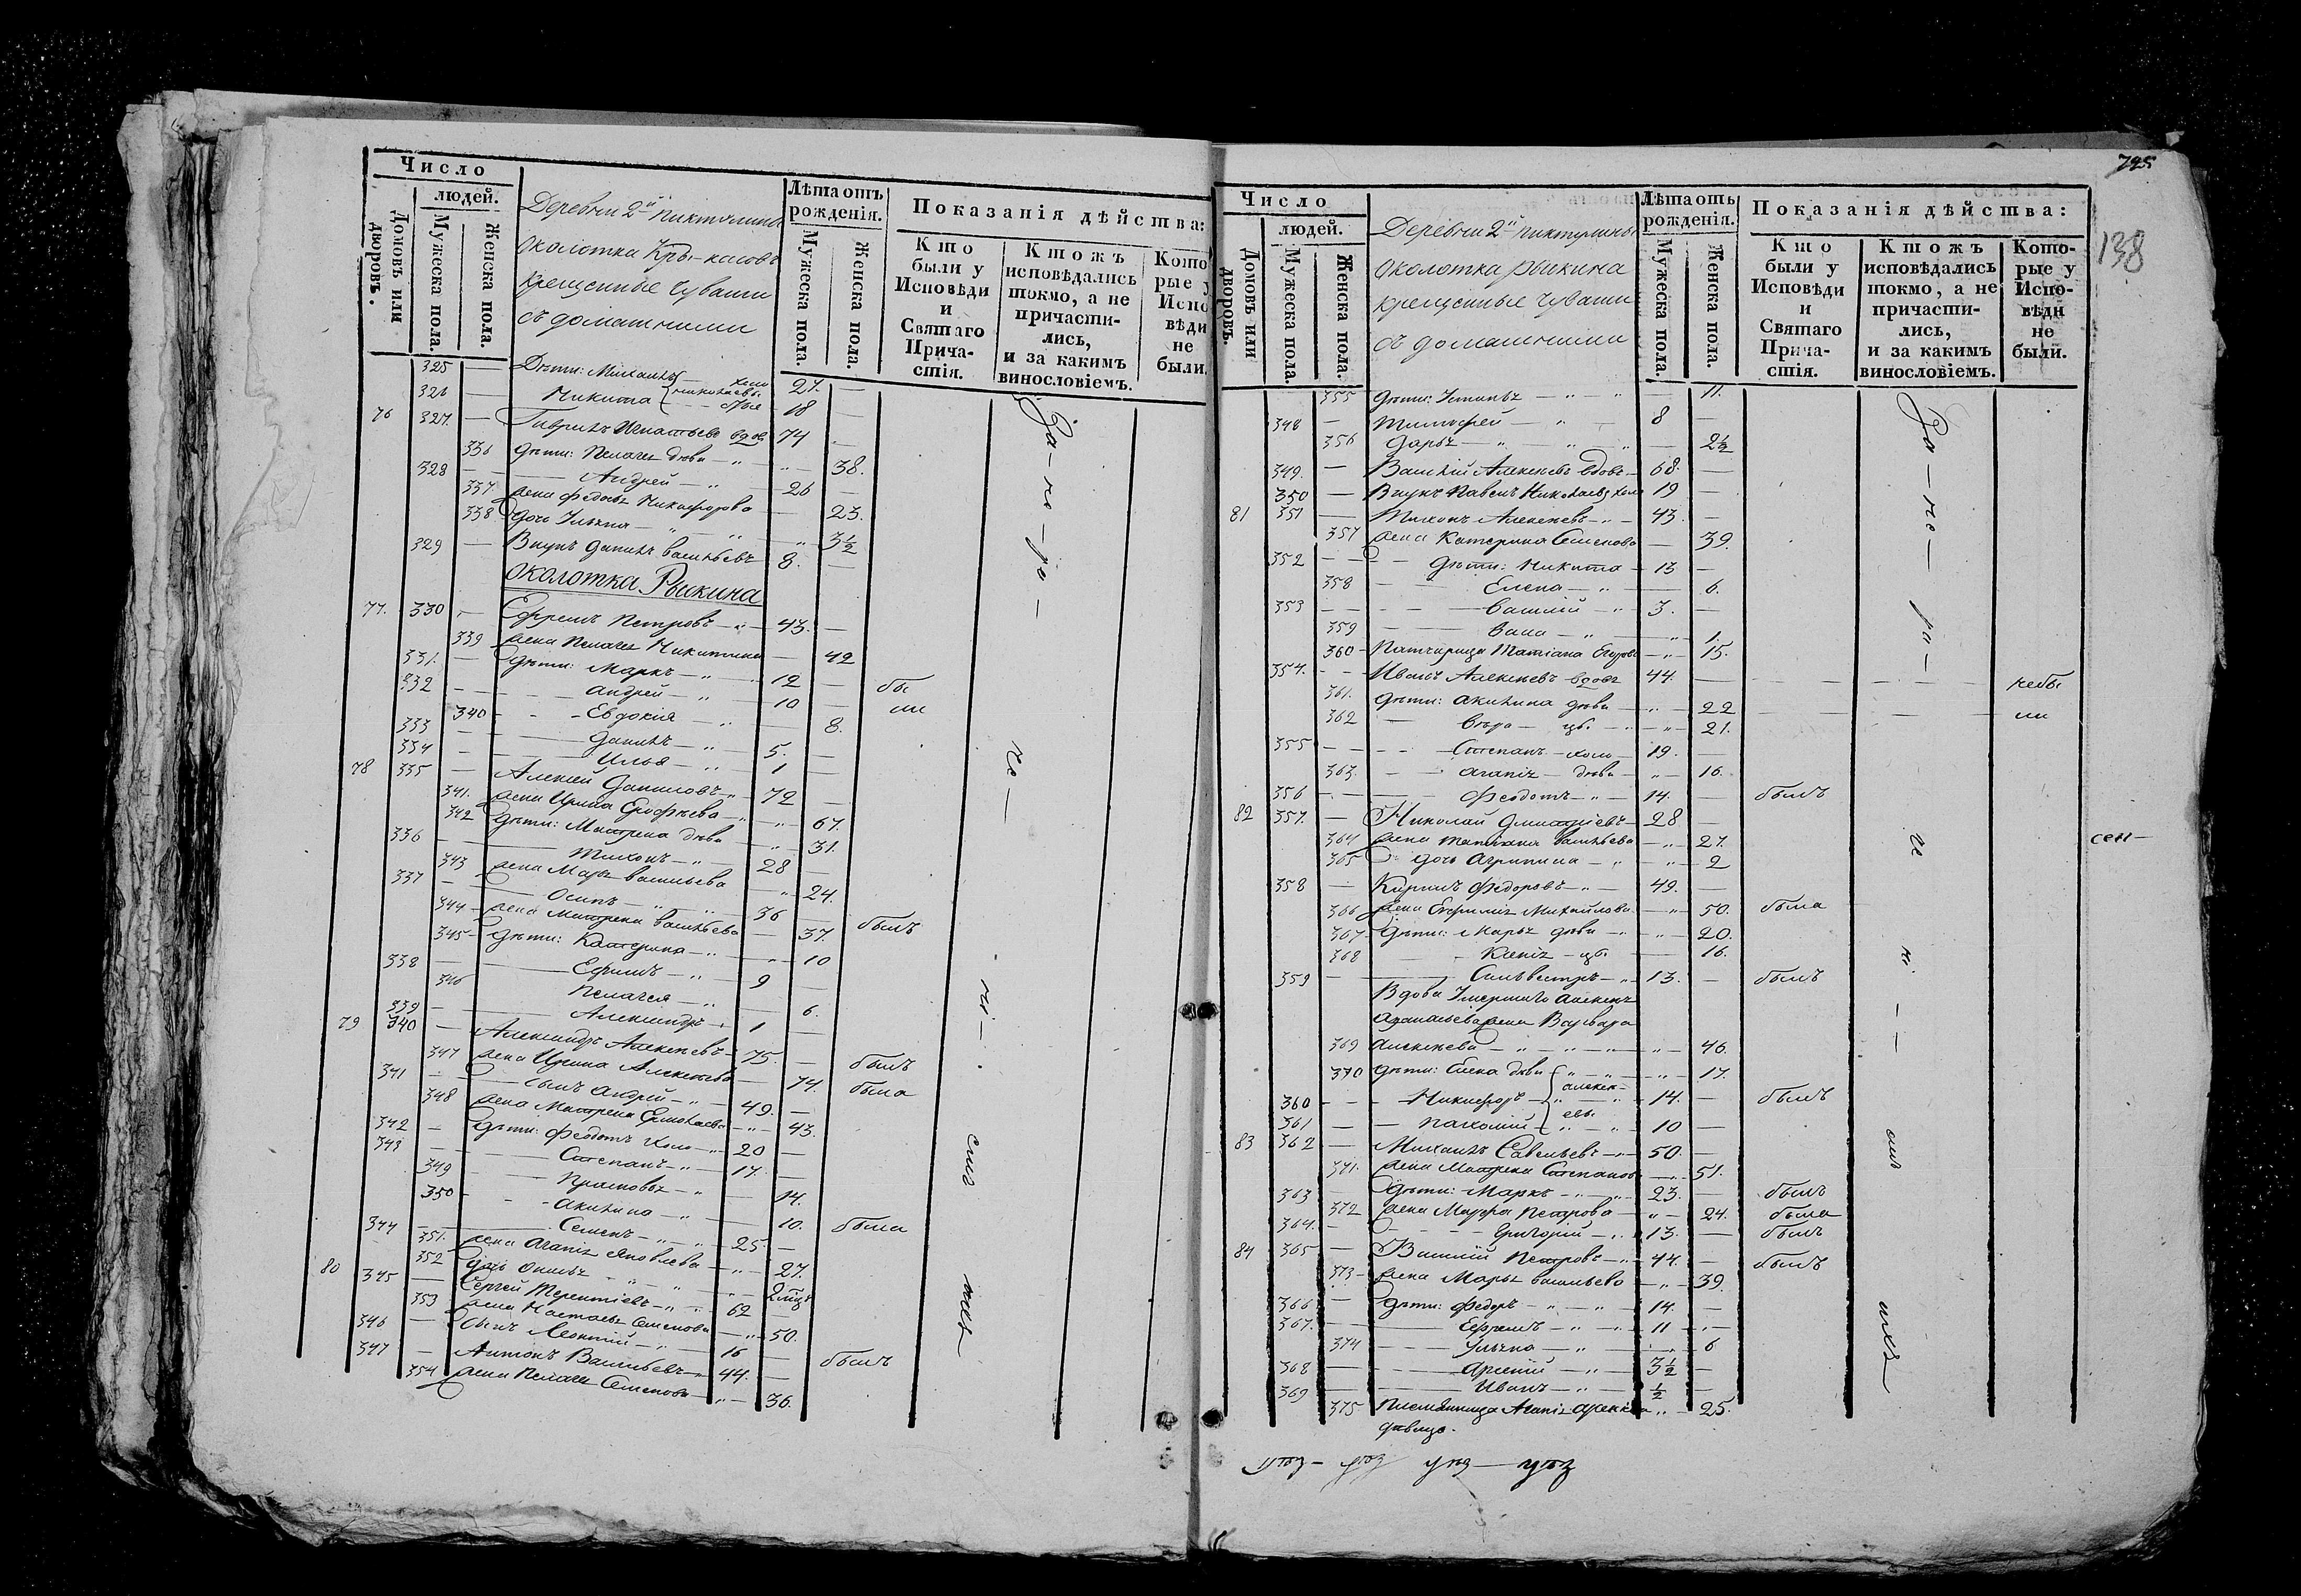 Число
людей.
Домовъ или дворовъ.
Мужеска пола.
Женска пола.
Деревни 2й Пиктулины
околотка Кры-касовъ
крещенные чуваши
съ домашними
Лѣта отъ рожденія.
Мужеска пола.
Женска пола.
Показанія дѣйства:
Кто были у Исповѣди и Святаго Причастія.
Ктожъ исповѣдались токмо, а не причастились, и за какимъ винословіемъ.
Кото рые у Испо вѣди не были.
325 — Дѣти: Михаилъ холо 21. —
326 — Никита Николаевы 18 —
76 327. — Гаврилъ Игнатьевъ вдов 74 —
336 дѣти: Пелагея дѣви — 38.
328 — Андрей — 26 —
337 жена Федосья Никифорова — 23.
338 дочь Ульяна — 3½
329 — Внукъ Данилъ Васильевъ 8. —
околотка Рыкина
77. 330 — Ефремъ Петровъ — 43. —
339 жена Пелагея Никитина — 42
331. — дѣти: Маркъ — 12 — бы
332 — Андрей — 10 — ли
340 — Евдокия — 8.
333 — Данилъ — 5. —
334 — Илья — 1 —
78 335 — Алексей Даниловъ — 72 —
341. жена Ирина Ерофеева — 67.
342 дѣти: Матрена дѣви — 31.
336 — Тихонъ — 28 —
343 жена Марья Васильева — 24.
337 — Осипъ — 36 — былъ
344 — жена Матрена Васильева — 37.
345 — дѣти: Катерина — 10
338 — Ефимъ — 9 —
346 Пелагея — 6.
339 — Александръ — 1 —
79 340 — Александръ Алексѣевъ — 75. — былъ
347 жена Ирина Алексѣева — 74. была
341 — сынъ Андрей — 49. —
348 жена Матрена Ермолаева — 43.
342 — дѣти: Феодотъ холо — 20 —
343 — Степанъ — 17. —
349 Прасковья — 14.
350 — Акилина — 10. была
344 — Семенъ — 25 —
351. жена Агапія Яковлева — 27.
352 дочь — 2 мцъ
80 345 — Сергей Терентіевъ — 62 —
353 жена Настасья Семенова — 50.
346 — сынъ Леонтий — 16 — былъ
347 — Антонъ Васильевъ — 44. —
354 жена Пелагея Семенова — 36.
За — не — ра —
725
138
Число
людей.
Домовъ или дворовъ.
Мужеска пола.
Женска пола.
Деревни 2й Пиктулины
околотка Рыкина
крещенные чуваши
съ домашними
Лѣта отъ рожденія.
Мужеска пола.
Женска пола.
Показанія дѣйства:
Кто были у Исповѣди и Святаго Причастія.
Ктожъ исповѣдались токмо, а не причастились, и за какимъ винословіемъ.
Которые у Исповѣди не были.
355 дѣти: — 11.
348 — Тимофей — 8 —
356 Дарья — 2½
349. — Василій Алексѣевъ вдовъ — 68. —
350 — Внукъ Павелъ Николаевъ холо 19 —
81 351 — Тихонъ Алексѣевъ — 43. —
357 жена Катерина Семенова — 39.
352 — дѣти: Никита — 13 —
358 — Елена — 6.
353 — Василій — 3. —
359 — 1.
360 — Падчерица Татіана Егорова — 15.
354. — Иванъ Алексѣевъ вдовъ 44. — небы
361. дѣти: Акилина дѣви — 22 — ли
362 — Вѣра — 21.
355 — Степанъ — холо — 19. —
363. — Агапія — дѣви — 16.
356 — Феодотъ — 14. — былъ
82 357. — Николай Дмитріевъ — 28 —
364 жена Татіана Васильева — 27.
365 дочь Агрипина — 2
358 — Кирилъ Федоровъ — 49. —
366 жена Ефимія Михайлова — 50. была
367 — дѣти: Марья дѣви — 20.
368 — Ксенія — 16.
359 — Сильвестръ — 13. — былъ
Вдова Умершаго Алексея
Афанасьева жена Варвара
369 Алексѣева — 46.
370 дѣти: Елена дѣви — 17.
360 — Никифоръ — Алексѣ- 14. — былъ
361 — Пахомій — евы 10 —
83 362 — Михаилъ Савельевъ — 50. —
371. жена Матрена Степанов — 51.
363 — дѣти: Маркъ — 23. — былъ
372 жена Марфа Петрова — 24. была
364. — Григорій — 13. — былъ
84 365 — Василій Петровъ — 44. — былъ
373 — жена Марья Васильева — 39.
366 — дѣти: Федоръ — 14. —
367. — Ефремъ — 11 —
374 — Ульяна — 6
368 — Арсеній — 3½ —
369 — Иванъ — ½ —
375 Племянница Агапія — 25.
дѣвица.
За — не — ра —
сен —